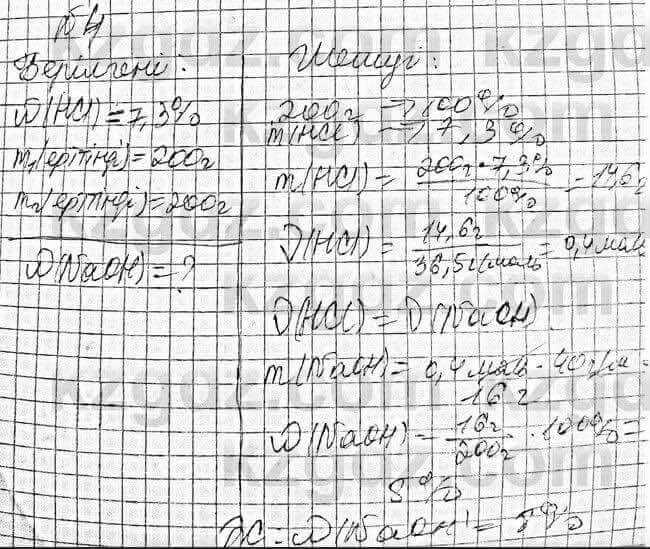 №4
Берілгені:
ω(HCl) = 7,3%
m₁(ерітінді) = 200г
m₂(ерітінді) = 200г
ω(NaOH) = ?
Шешуі:
200г => 100%
m(HCl) => 7,3%
m(HCl) = 200г • 7,3% / 100% = 14,6г
ν(HCl) = 14,6г / 36,5г/моль = 0,4 моль
ν(HCl) = ν(NaOH)
m(NaOH) = 0,4 моль · 40г/м =
16 г
ω(NaOH) = 16г / 200г · 100% =
8%
Ж: ω(NaOH) = 8%
kzgdz.com